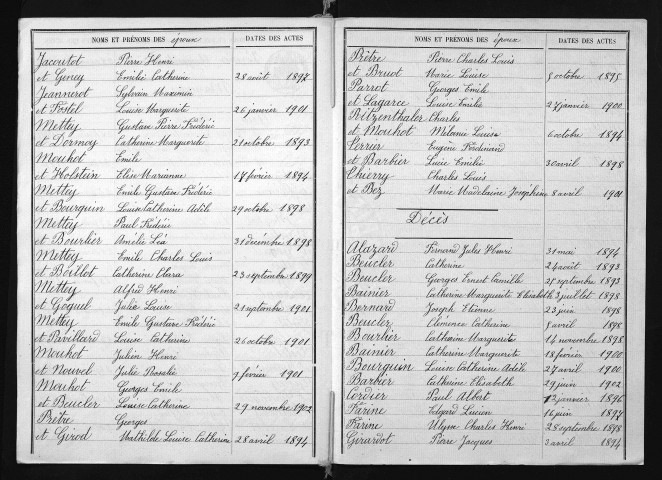 NOMS ET PRÉNOMS DES époux DATES DES ACTES
Jacoutot Pierre Henri
et Gency Emilie Catherine 28 août 1897
Jeannerot Sylvain Maximin
et Fostel Louise Marguerite 26 janvier 1901
Mettey Gustave Pierre Frédéric
et Dormoy Catherine Marguerite 21 octobre 1893
Mouhot Emile
et Holstein Elise Marianne 17 février 1894
Mettey Emile Gustave Frédéric
et Bourquin Louise Catherine Adèle 29 octobre 1898
Mettey Paul Frédéric
et Bourlier Amélie Léa 31 décembre 1898
Mettey Emile Charles Louis
et Boillot Catherine Clara 23 septembre 1899
Mettey Alfred Henri
et Goguel Julie Louise 21 septembre 1901
Mettey Emile Gustave Frédéric
et Pavillard Louise Catherine 26 octobre 1901
Mouhot Julien Henri
et Nouvel Julie Rosalie 9 février 1901
Mouhot Georges Emile
et Beucler Louise Catherine 29 novembre 1902
Prêtre Georges
et Girod Mathilde Louise Catherine 28 avril 1894
NOMS ET PRÉNOMS DES époux DATES DES ACTES
Prêtre Pierre Charles Louis
et Bruot Marie Louise 5 octobre 1895
Parrot Georges Emile
et Lagarce Louise Emilie 27 janvier 1900
Ritzenthaler Charles
et Mouhot Mélanie Louise 6 octobre 1894
Perrur Eugène Ferdinand
et Barbier Lucie Emilie 30 avril 1898
Thierry Charles Louis
et Bez Marie Madelaine Joséphine 8 avril 1901
Décès
Alazard Fernand Jules Henri 31 mai 1894
Beucler Catherine 24 août 1893
Beucler Georges Ernest Camille 25 septembre 1893
Bainier Catherine Marguerite Elisabeth 3 juillet 1898
Bernard Joseph Etienne 23 juin 1898
Beucler Clémence Catherine 5 avril 1898
Bourlier Catherine Marguerite 14 novembre 1898
Bainier Catherine Marguerite 18 février 1900
Bourquin Louise Catherine Adèle 27 avril 1900
Barbier Catherine Elisabeth 29 juin 1902
Cordier Paul Albert 12 janvier 1896
Farine Edgard Lucien 16 juin 1897
Farine Ulysse Charles Henri 28 septembre 1898
Girardot Pierre Jacques 3 avril 1894